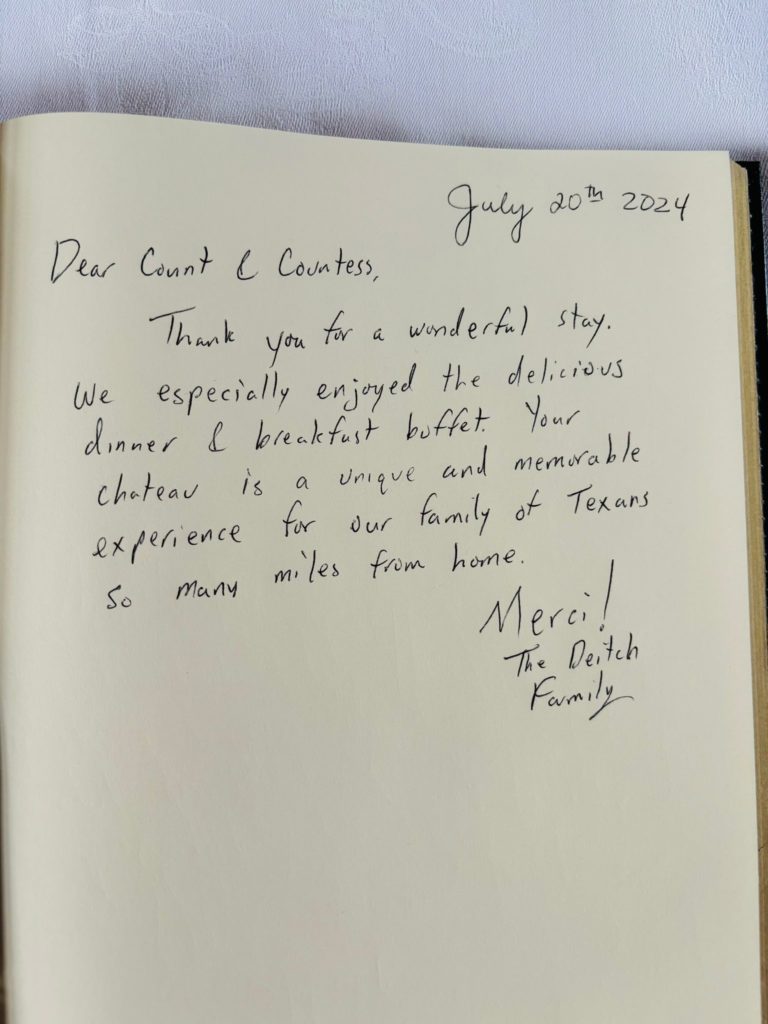 July 20th 2024
Dear Count & Countess,
Thank you for a wonderful stay.
We especially enjoyed the delicious
dinner & breakfast buffet. Your
chateau is a unique and memorable
experience for our family of Texans
so many miles from home.
Merci!
The Deitch
Family